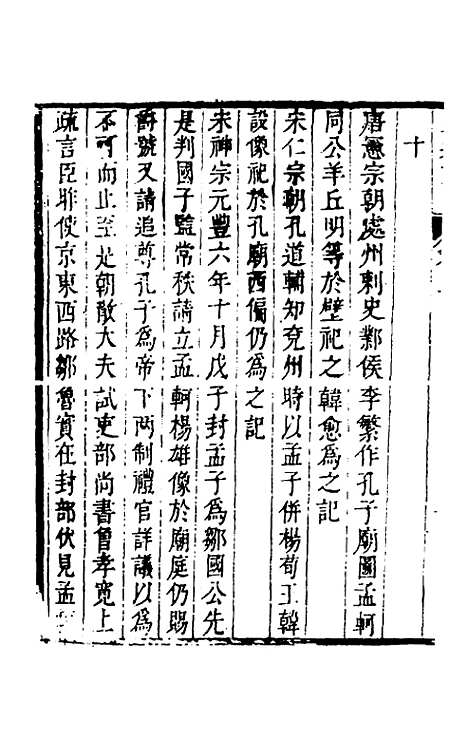 十
唐憲宗朝處州刺史鄴侯李繁作孔子廟圖孟軻
同公羊丘明等於壁祀之韓愈為之記
宋仁宗朝孔道輔知兗州時以孟子併楊荀王韓
設像祀於孔廟西偏仍為之記
宋神宗元豐六年十月戊子封孟子為鄒國公先
是判國子監常秩請立孟軻楊雄像於廟庭仍賜
爵號又請追尊孔子為帝下兩制禮官詳議以為
不可而止至是朝散大夫試吏部尚書曾孝寬上
疏言臣昨使京東西路鄒魯實在封部伏見孟